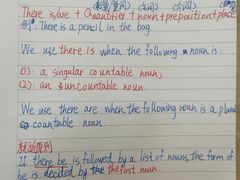 (数量/量词) (名词) (介词)
There is/are + Quantifier + noun + preposition + place
例: There is a pencil in the bag.
We use there is when the following noun is:
(1): a singular countable noun,
(2): an uncountable noun.
We use there are when the following noun is a plural
countable noun.
就近原则
If there be is followed by a list of nouns, the form of
be is decided by the first noun.